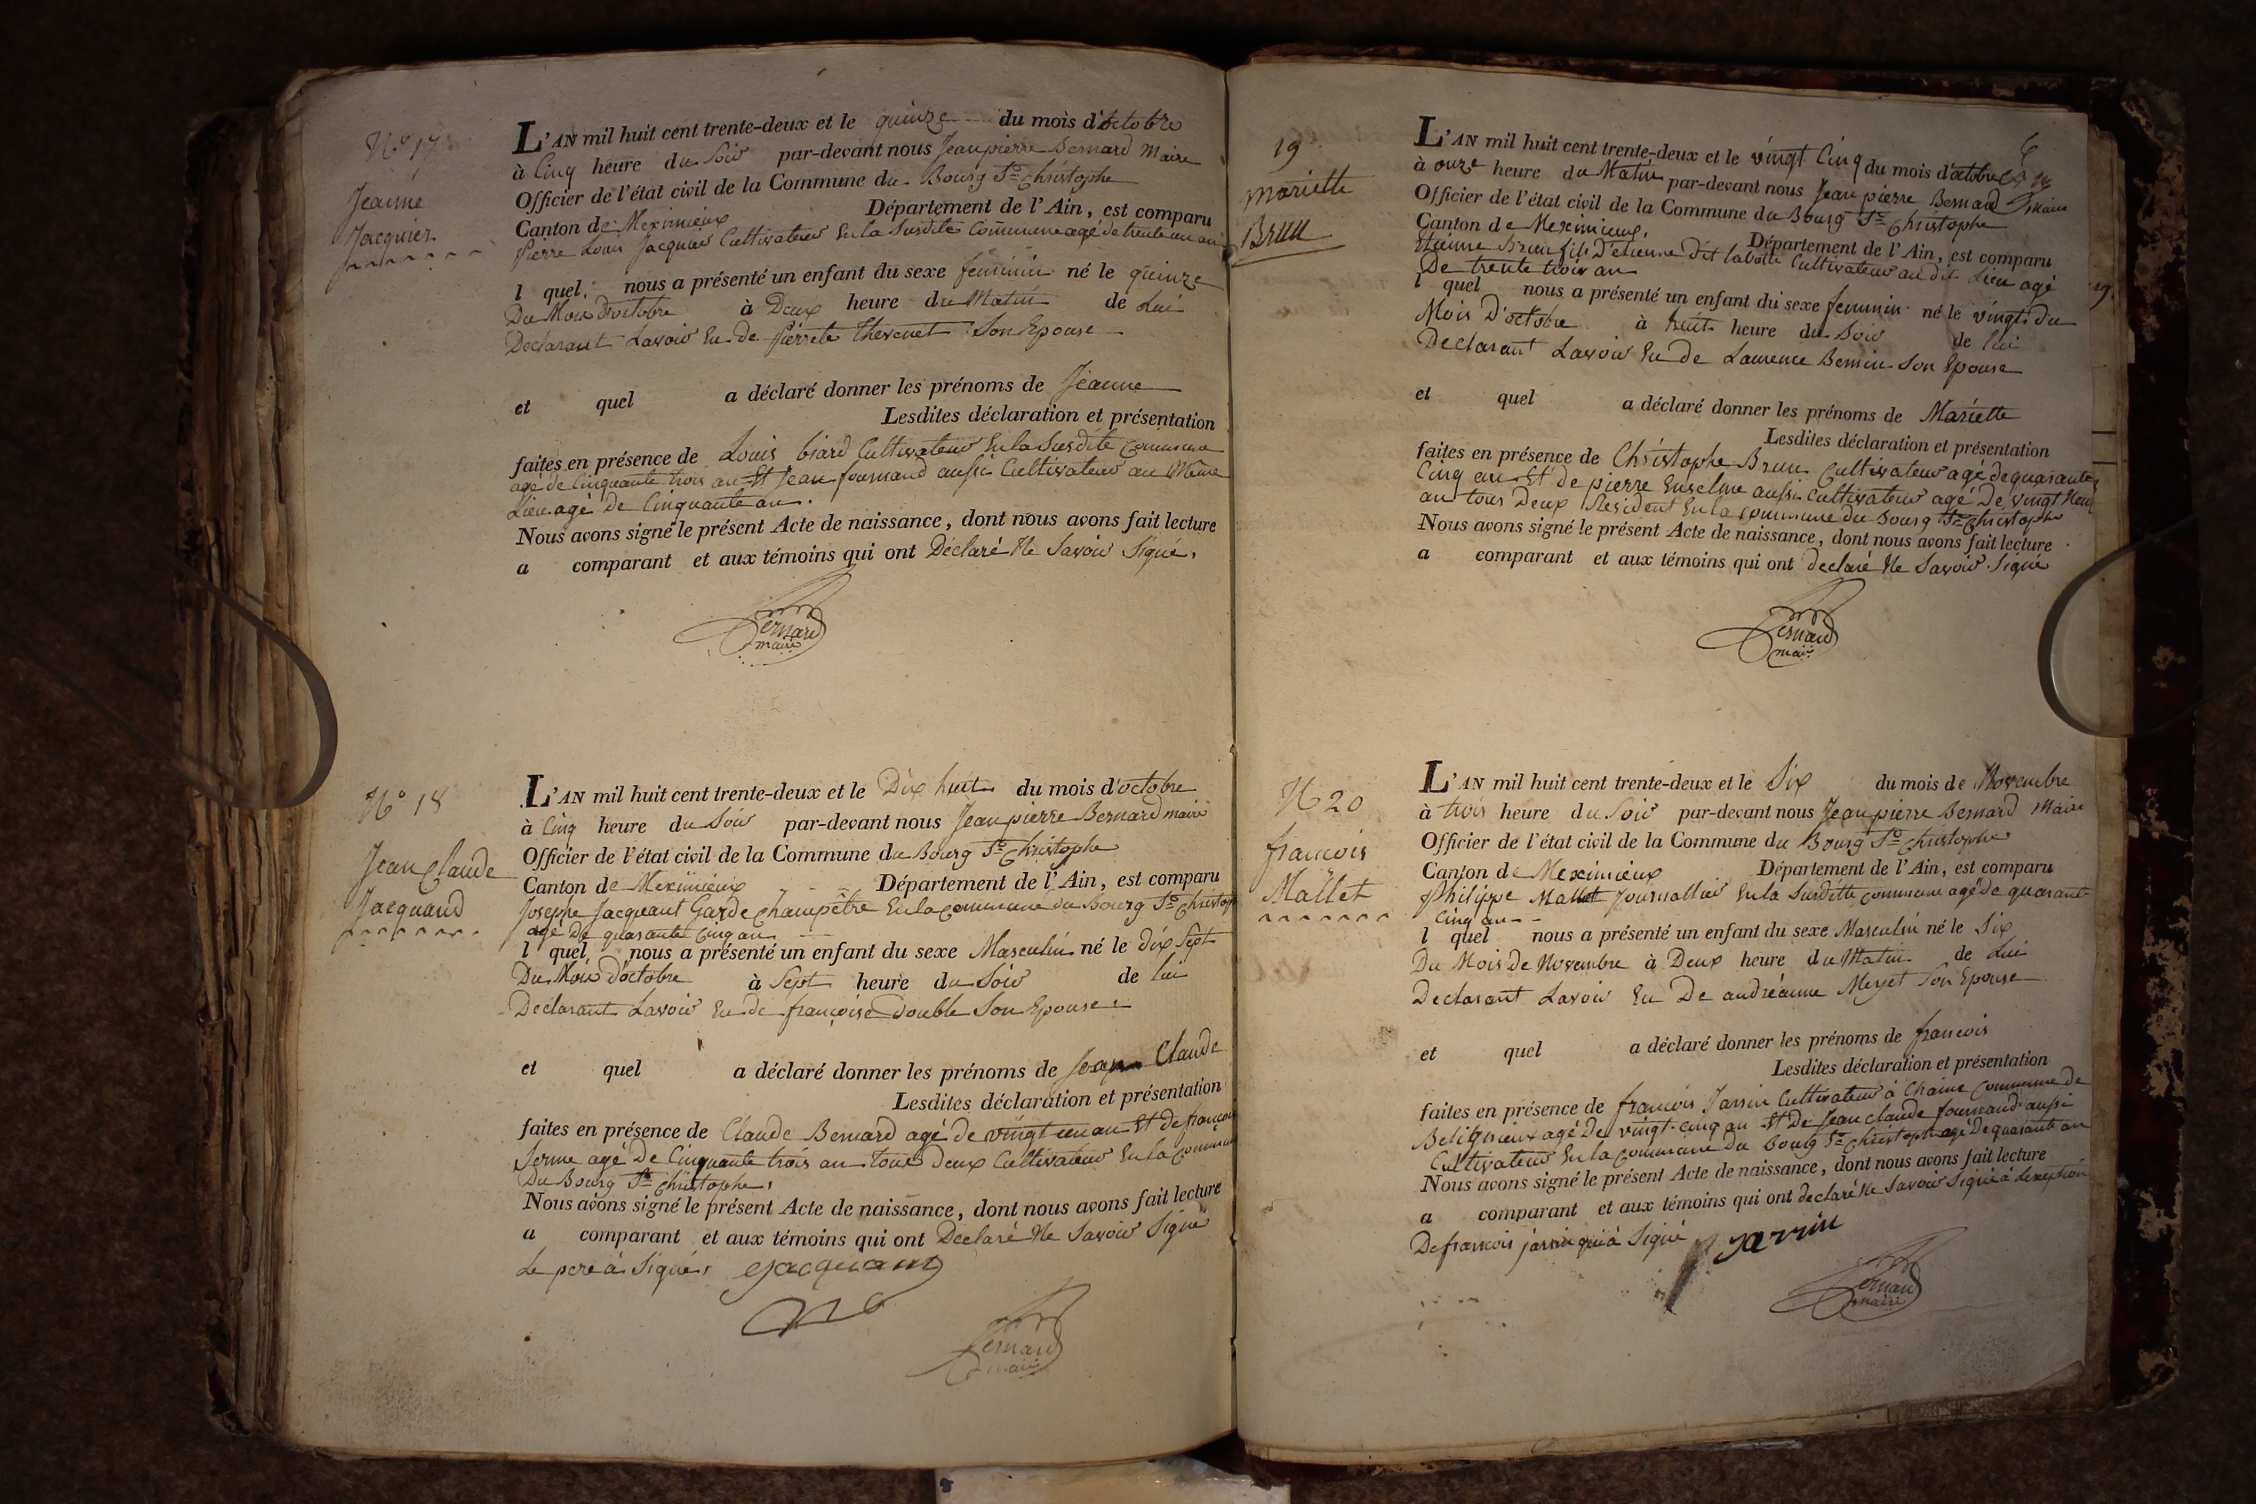 N.o 17
Jeanne
Jacquier
L'AN mil huit cent trente-deux et le quinze du mois d'octobre
à Cinq heure du Soir par-devant nous Jean pierre Bernard Maire
Officier de l'état civil de la Commune du Bourg St Christophe
Canton de Meximieux Département de l'Ain, est comparu
Pierre Louis Jacquier Cultivateur En la Susdite Commune agé de trente un an
l quel nous a présenté un enfant du sexe féminin né le quinze
Du Mois d'octobre à Deux heure du Matin de Lui
Déclarant Lavoir Eu de Pierrete Thevenet Son Epouse
et quel a déclaré donner les prénoms de Jeanne
Lesdites déclaration et présentation
faites en présence de Louis biard Cultivateur En la Susdite Commune
agé de Cinquante trois an Et Jean fournand aussi Cultivateur au Même
Lieu agé De Cinquante an.
Nous avons signé le présent Acte de naissance, dont nous avons fait lecture
a comparant et aux témoins qui ont Déclaré Ne Savoir Signé,
Bernard
maire
N.o 18
Jean Claude
Jacquand
L'AN mil huit cent trente-deux et le Dix huit du mois d'octobre
à Cinq heure du Soir par-devant nous Jean pierre Bernard maire
Officier de l'état civil de la Commune du Bourg St Christophe
Canton de Meximieux Département de l'Ain, est comparu
Joseph Jacquant Garde Champêtre En la Commune du Bourg St Christop
agé De quarante Cinq an
l quel nous a présenté un enfant du sexe Masculin né le Dix Sept
Du Mois d'octobre à Sept heure du Soir de lui
Declarant Lavoir Eu de françoise Double Son Epouse
et quel a déclaré donner les prénoms de Jean Claude
Lesdites déclaration et présentation
faites en présence de Claude Bernard agé de vingt un an Et de francois
ferme agé De Cinquante trois an tous Deux Cultivateur En la Commune
Du Bourg St Christophe,
Nous avons signé le présent Acte de naissance, dont nous avons fait lecture
a comparant et aux témoins qui ont Declaré Ne Savoir Signé
Le pere à Signé, Jacquant
Bernard
maire
19
mariette
Brun
L'AN mil huit cent trente-deux et le vingt Cinq du mois d'octobre
à onze heure du Matin par-devant nous Jean pierre Bernard maire
Officier de l'état civil de la Commune du Bourg St Christophe
Canton de Meximieux, Département de l'Ain, est comparu
Etienne Brun fils D'etienne dit Cultivateur au dit Lieu agé
De trente trois an
l quel nous a présenté un enfant du sexe feminin né le vingt du
Mois D'octobre à huit heure du Soir de lui
Declarant Lavoir Eu de Laurence Bernin Son Epouse
et quel a déclaré donner les prénoms de Mariette
Lesdites déclaration et présentation
faites en présence de Christophe Brun Cultivateur agé de quarante
Cinq an Et de pierre Enselme aussi Cultivateur agé De vingt Neuf
an tous Deux Résident En la Commune du Bourg St Christophe
Nous avons signé le présent Acte de naissance, dont nous avons fait lecture
a comparant et aux témoins qui ont declaré Ne Savoir Signé
Bernard
maire
N 20
francois
Mallet
L'AN mil huit cent trente-deux et le Six du mois de Novembre
à trois heure du Soir par-devant nous Jean pierre Bernard Maire
Officier de l'état civil de la Commune du Bourg St Christophe
Canton de Meximieux Département de l'Ain, est comparu
Philippe Mallet Journallier En la Susditte commune agé de quarante
Cinq an
l quel nous a présenté un enfant du sexe Masculin né le Six
Du Mois De Novembre à Deux heure du Matin de Lui
Declarant Lavoir Eu De andréanne Merjet Son Epouse
et quel a déclaré donner les prénoms de francois
Lesdites déclaration et présentation
faites en présence de francois Jarrin Cultivateur à Chaine Commune de
Beligneux agé De vingt cinq an Et De Jean Claude fournand aussi
Cultivateur En la Commune du Bourg St Christophe agé De quarante an
Nous avons signé le présent Acte de naissance, dont nous avons fait lecture
a comparant et aux témoins qui ont declaré Ne Savoir Signé à Lexeption
De francois jarrin qui à Signé Jarrin
Bernard
maire